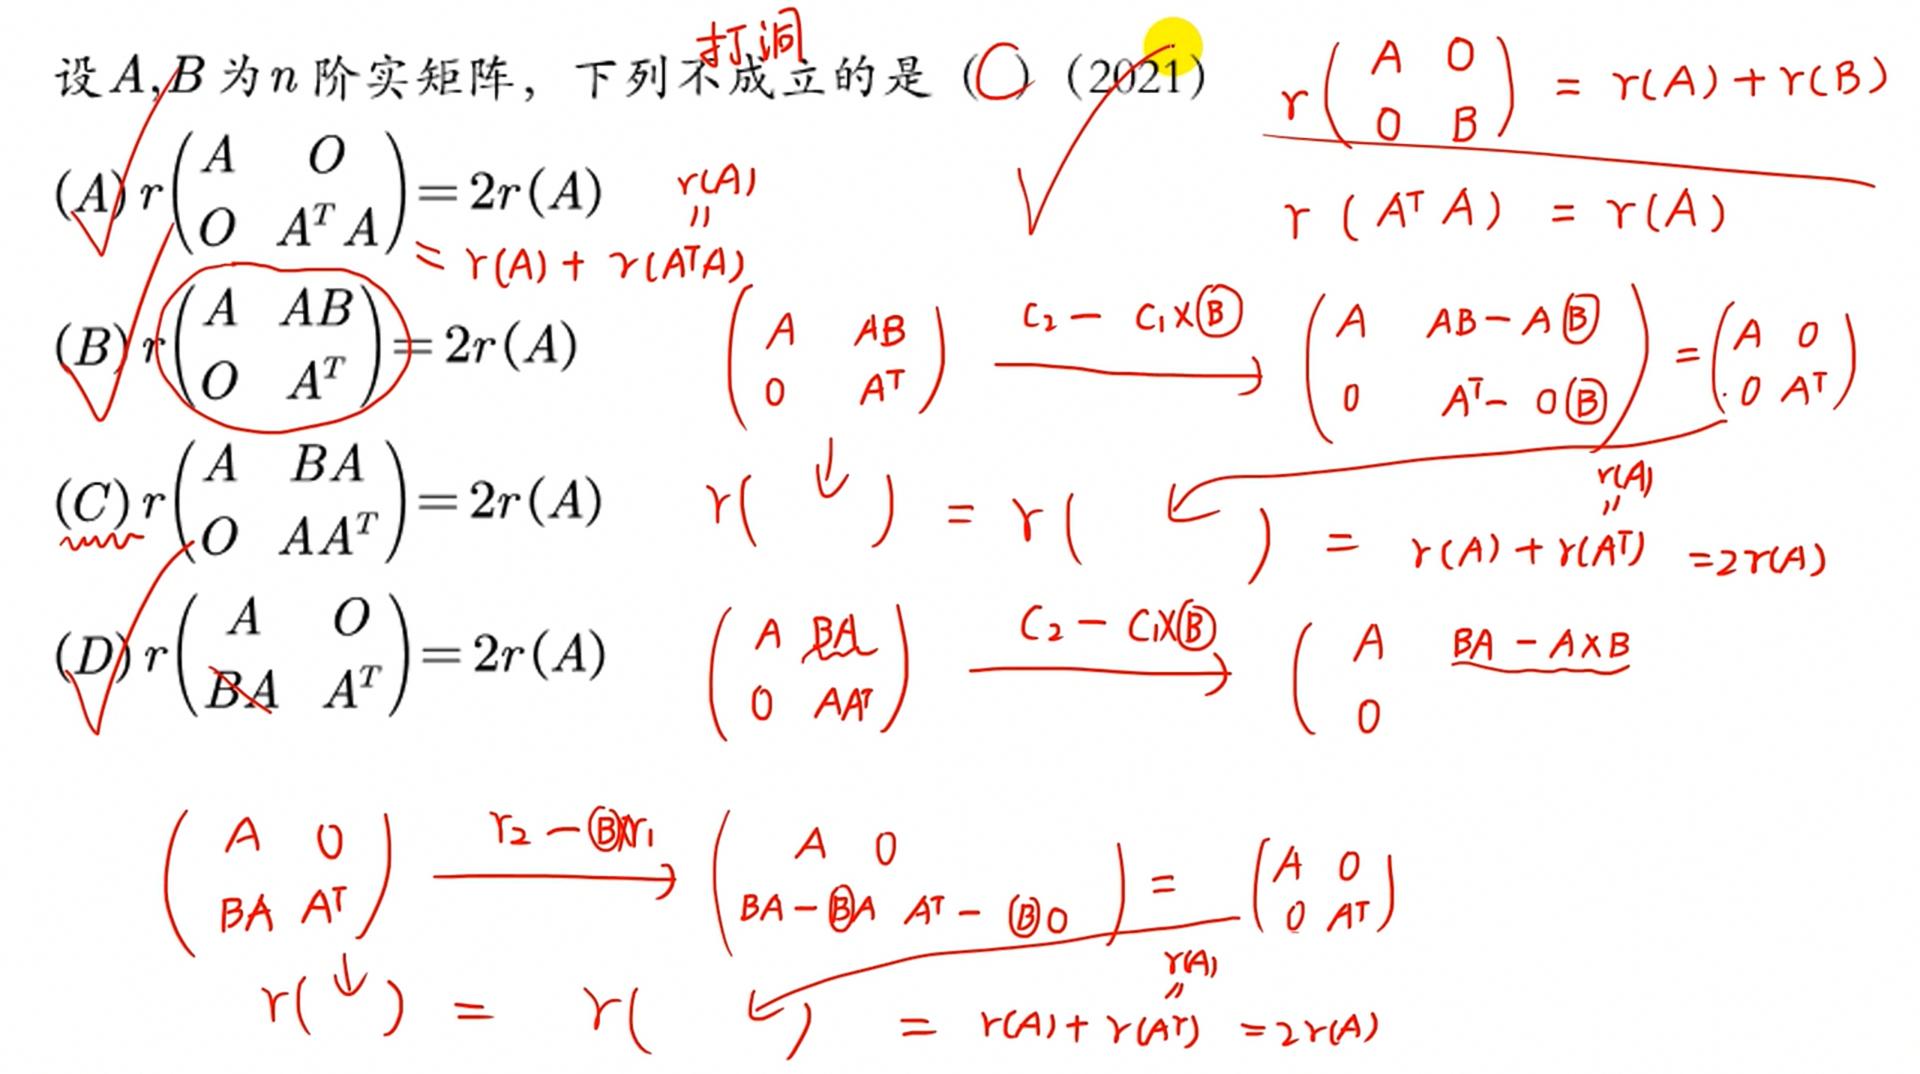 打洞
设A,B为n阶实矩阵，下列不成立的是（C）（2021）
(A) r(A O; O AᵀA) = 2r(A)
= r(A) + r(AᵀA)
r(A)
"
(B) r(A AB; O Aᵀ) = 2r(A)
(C) r(A BA; O AAᵀ) = 2r(A)
(D) r(A O; BA Aᵀ) = 2r(A)
r(A O; O B) = r(A) + r(B)
r(AᵀA) = r(A)
(A AB; 0 Aᵀ) C₂ - C₁×B → (A AB-AB; 0 Aᵀ-0B) = (A 0; 0 Aᵀ)
r(↓) = r( ) = r(A) + r(Aᵀ) = 2r(A)
r(A)
"
(A BA; 0 AAᵀ) C₂ - C₁×B → (A BA-A×B; 0
(A 0; BA Aᵀ) r₂ - B×r₁ → (A 0; BA-BA Aᵀ-B0) = (A 0; 0 Aᵀ)
r(↓) = r( ) = r(A) + r(Aᵀ) = 2r(A)
r(A)
"